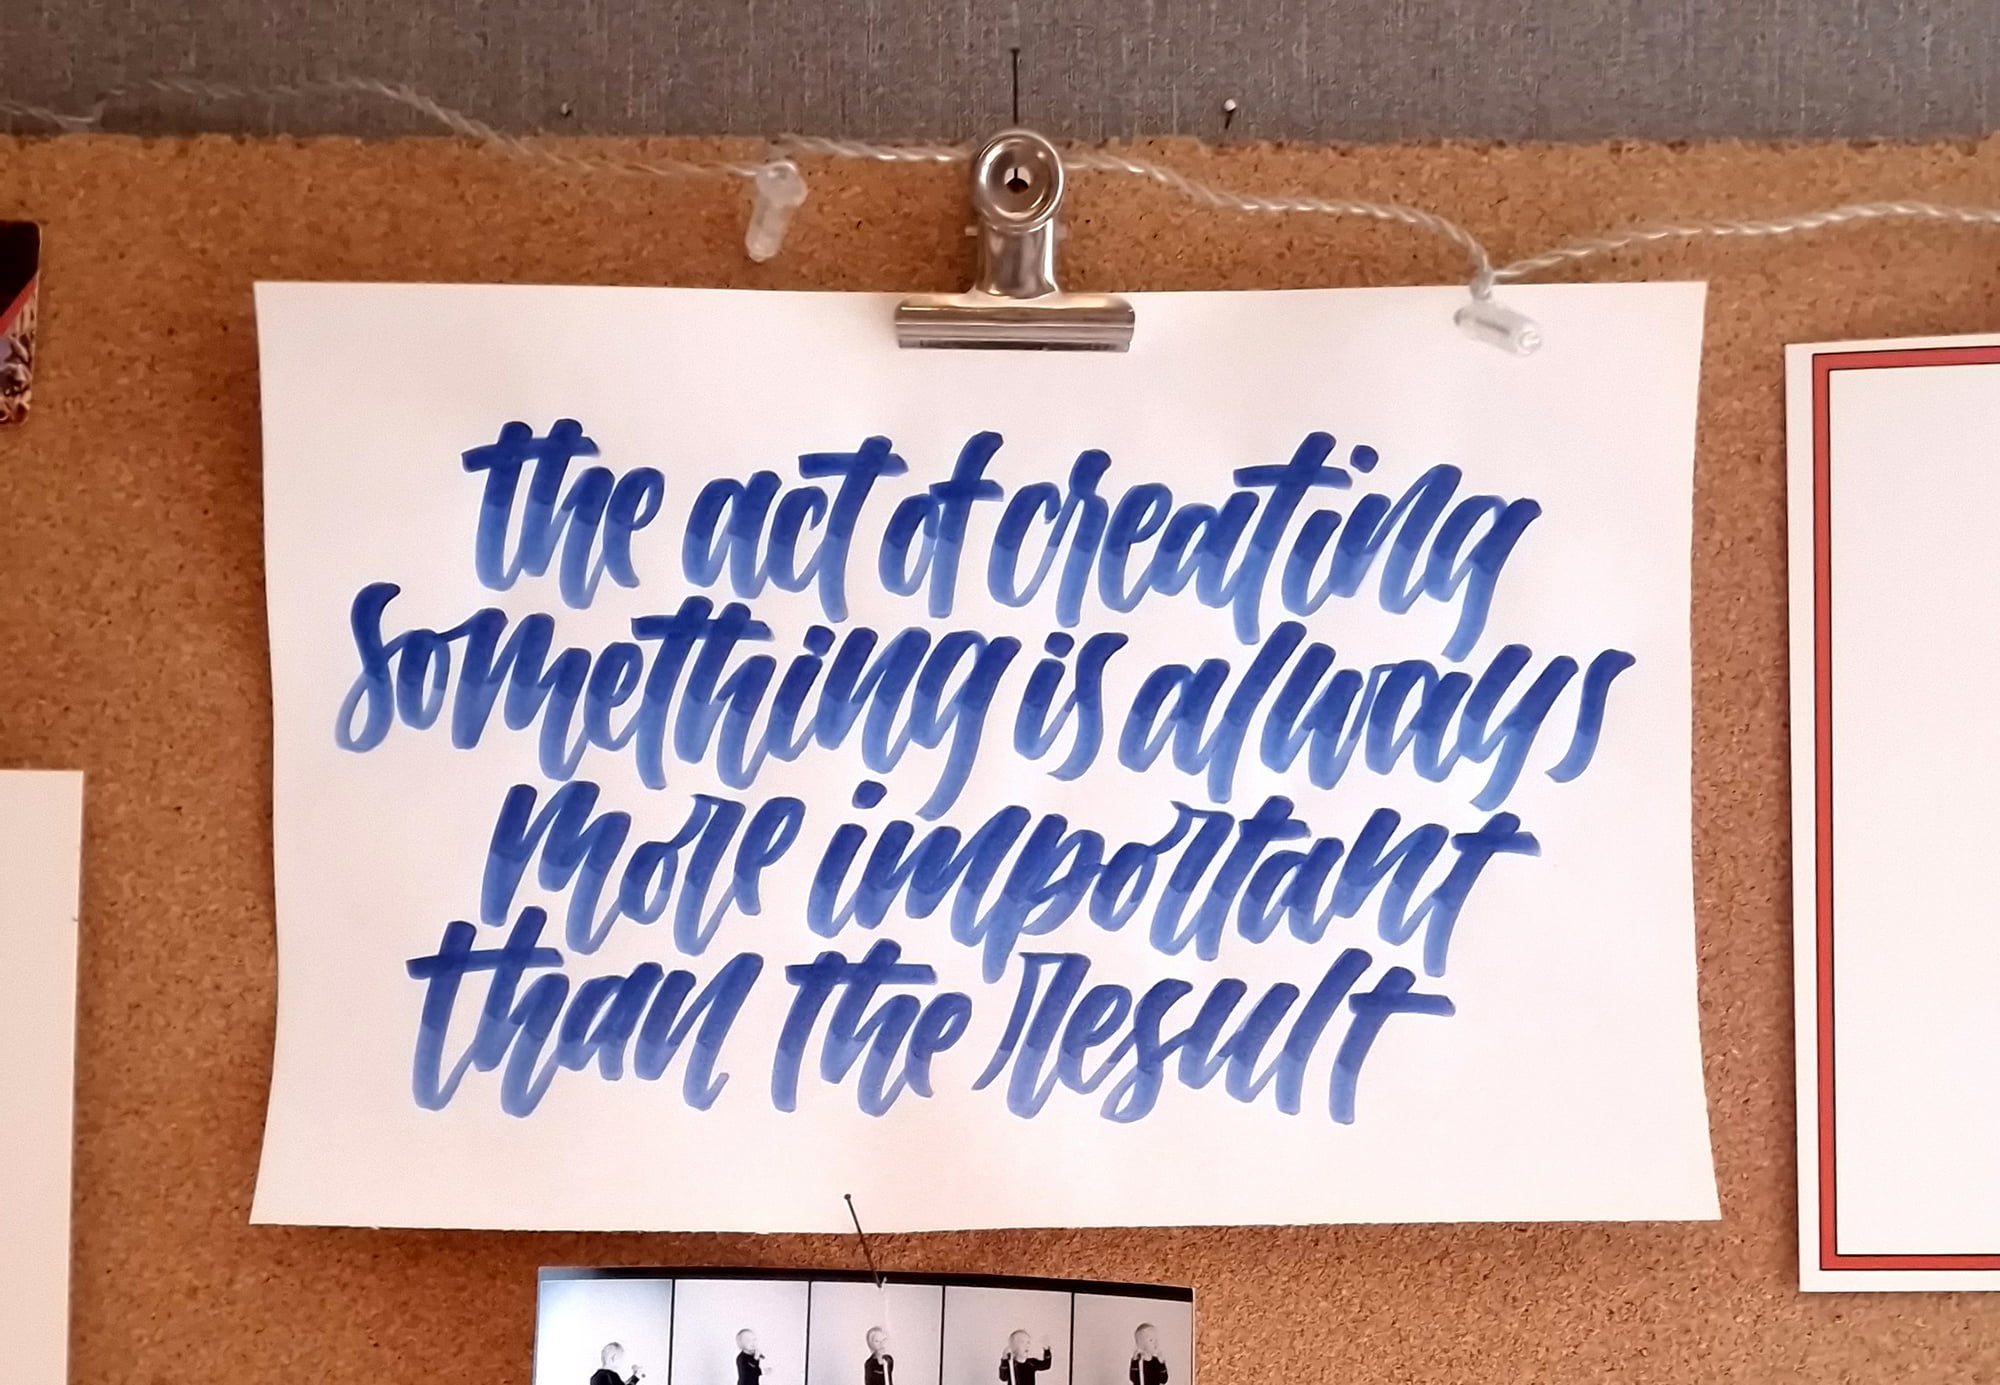 the act of creating
something is always
more important
than the result